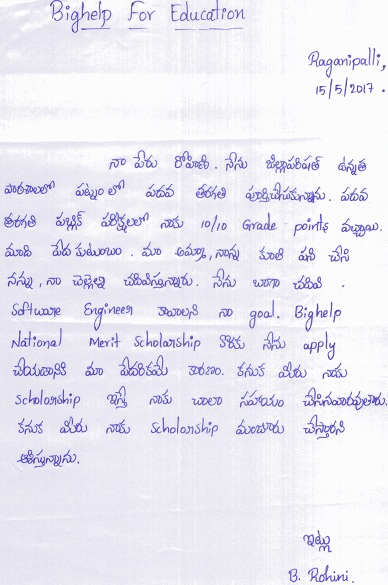 Bighelp For Education
Raganipalli,
15/5/2017.
నా పేరు రోహిణి. నేను జిల్లాపరిషత్ ఉన్నత
పాఠశాలలో పట్నం లో పదవ తరగతి పూర్తిచేసుకున్నాను. పదవ
తరగతి పబ్లిక్ పరీక్షలలో నాకు 10/10 Grade points వచ్చాయి.
మాది పేద కుటుంబం. మా అమ్మా, నాన్న కూలి పని చేసి
నన్ను, నా చెల్లెల్ని చదివిస్తున్నారు. నేను బాగా చదివి.
Software Engineer కావాలని నా goal. Bighelp
National Merit Scholarship కొరకు నేను apply
చేయడానికి మా పేదరికమే కారణం. కనుక మీరు నాకు
scholarship ఇస్తే నాకు చాలా సహాయం చేసినవారవుతారు.
కనుక మీరు నాకు Scholarship మంజూరు చేస్తారని
ఆశిస్తున్నాను.
ఇట్లు
B. Rohini.